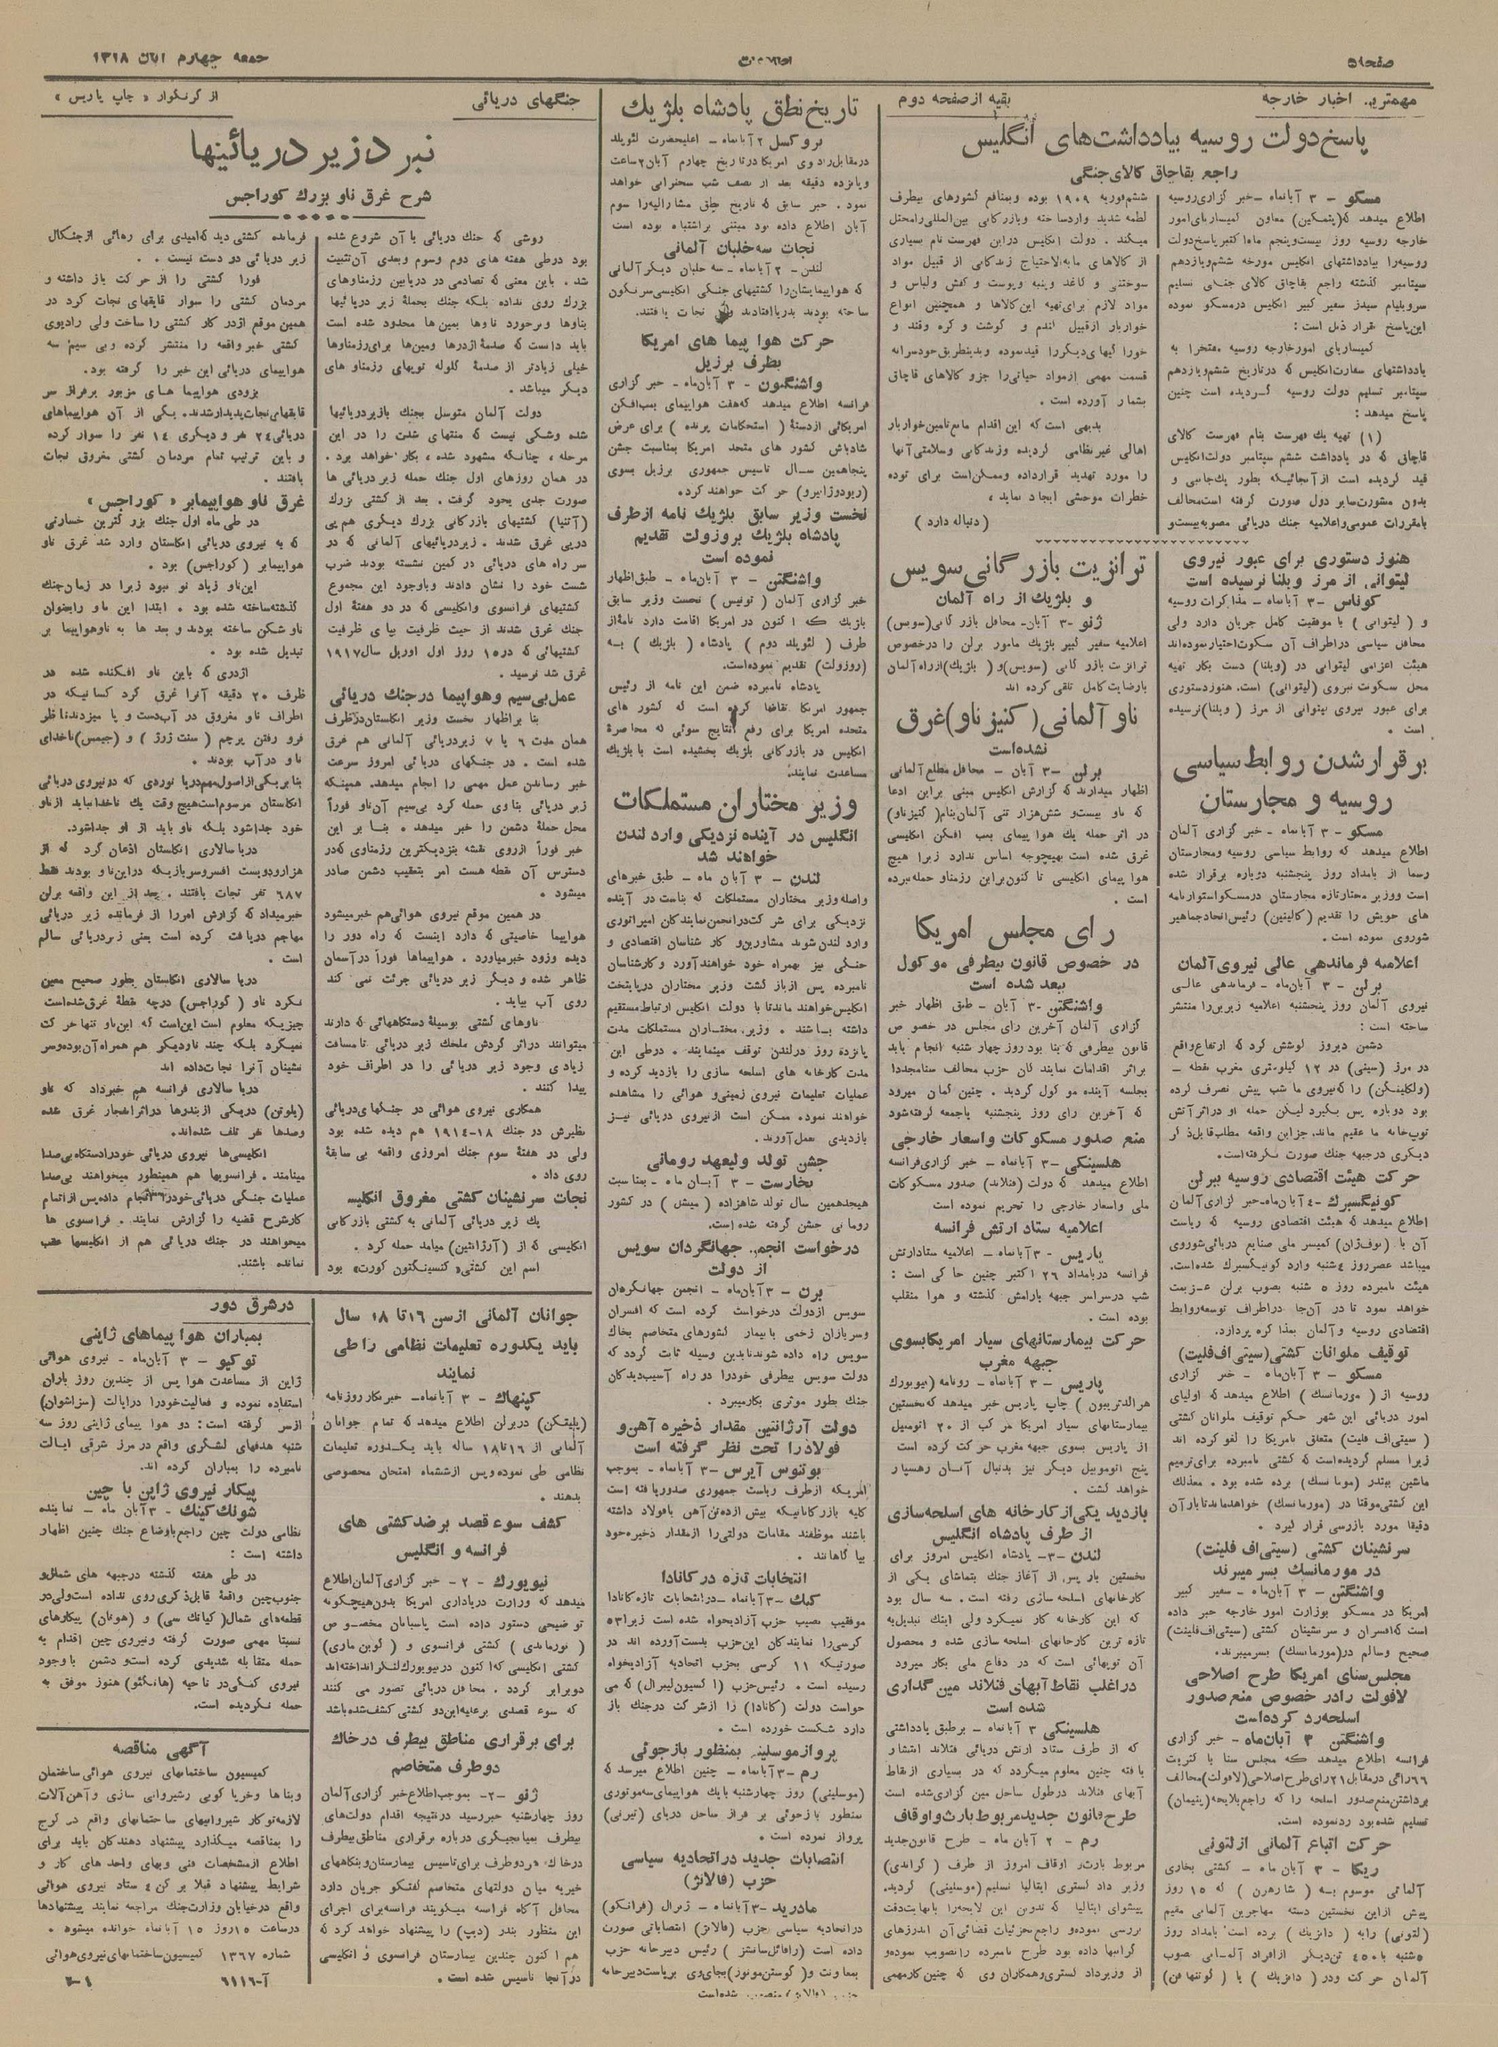 صفحه ۵
اطلاعات
جمعه چهارم آبان ۱۳۱۸
مهمترین اخبار خارجه
بقیه از صفحه دوم
پاسخ دولت روسیه بیادداشت‌های انگلیس
راجع بقاچاق کالای جنگی
مسکو - ۳ آبانماه - خبر گزاری روسیه
اطلاع میدهد که (پتمکین) معاون کمیساریای امور
خارجه روسیه روز بیست و پنجم ماه اکتبر پاسخ دولت
روسیه را بیادداشتهای انگلیس مورخه ششم و یازدهم
سپتامبر گذشته راجع بقاچاق کالای جنگی تسلیم
سرویلیام سیدز سفیر کبیر انگلیس در مسکو نموده
این پاسخ بقرار ذیل است :
کمیساریای امور خارجه روسیه مفتخرا به
یادداشتهای سفارت انگلیس که در تاریخ ششم و یازدهم
سپتامبر تسلیم دولت روسیه گردیده است چنین
پاسخ میدهد :
(۱) تهیه یك فهرست بنام فهرست کالای
قاچاق که در یادداشت ششم سپتامبر دولت انگلیس
قید گردیده است از آنجائیکه بطور یك جانبی و
بدون مشورت سایر دول صورت گرفته است مخالف
با مقررات عمومی و اعلامیه جنك دریائی مصوبه بیست و
ششم فوریه ۱۹۰۹ بوده و بمنافع کشورهای بیطرف
لطمه شدید وارد ساخته و بازرگانی بین‌المللی را مختل
میکند . دولت انگلیس در این فهرست نام بسیاری
از کالاهای مابه‌الاحتیاج زندگانی از قبیل مواد
سوختنی و کاغذ و پنبه و پوست و کفش و لباس و
مواد لازم برای تهیه این کالاها و همچنین انواع
خواربار از قبیل گندم و گوشت و کره و قند و
خوراکیهای دیگر را قید نموده و بدینطریق خودسرانه
قسمت مهمی از مواد حیاتی را جزو کالاهای قاچاق
بشمار آورده است .
بدیهی است که این اقدام مانع تامین خواربار
اهالی غیر نظامی گردیده و زندگانی و سلامتی آنها
را مورد تهدید قرار داده و ممکن است برای توده
خطرات موحشی ایجاد نماید ،
(دنباله دارد)
هنوز دستوری برای عبور نیروی
لیتوانی از مرز ویلنا نرسیده است
کوناس - ۳ آبانماه - مذاکرات روسیه
و (لیتوانی) با موفقیت کامل جریان دارد ولی
محافل سیاسی در اطراف آن سکوت اختیار نموده‌اند
هیئت اعزامی لیتوانی در (ویلنا) دست بکار تهیه
محل سکونت نیروی (لیتوانی) است. هنوز دستوری
برای عبور نیروی لیتوانی از مرز (ویلنا) نرسیده
است .
برقرار شدن روابط سیاسی
روسیه و مجارستان
مسکو - ۳ آبانماه - خبر گزاری آلمان
اطلاع میدهد که روابط سیاسی روسیه و مجارستان
رسما از بامداد روز پنجشنبه دوباره برقرار شده
است و وزیر مختار تازه مجارستان در مسکو استوارنامه
های خویش را تقدیم (کالینین) رئیس اتحاد جماهیر
شوروی نموده است .
اعلامیه فرماندهی عالی نیروی آلمان
برلن - ۳ آبان‌ماه - فرماندهی عالی
نیروی آلمان روز پنجشنبه اعلامیه زیرین را منتشر
ساخته است :
دشمن دیروز کوشش کرد که ارتفاع واقع
در مرز (سیتی) در ۱۲ کیلومتری مغرب نقطه -
(ولکلینگن) را که نیروی ما شب پیش تصرف کرده
بود دوباره پس بگیرد لیکن حمله او در اثر آتش
توپخانه ما عقیم ماند. جز این واقعه مطلب قابل ذکر
دیگری در جبهه جنك صورت نگرفته است.
حرکت هیئت اقتصادی روسیه ببرلن
کونیگسبرك - ۴ آبان‌ماه - خبر گزاری آلمان
اطلاع میدهد که هیئت اقتصادی روسیه که ریاست
آن با (توف‌ژان) کمیسر ملی صنایع دریائی شوروی
میباشد عصر روز ۴ شنبه وارد کونیگسبرك شده است.
هیئت نامبرده روز ۵ شنبه بصوب برلن عزیمت
خواهد نمود تا در آن‌جا در اطراف توسعه روابط
اقتصادی روسیه و آلمان بمذاکره پردازد.
توقیف ملوانان کشتی (سیتی اف فلیت)
مسکو - ۳ آبان‌ماه - خبر گزاری
روسیه از (مورمانسك) اطلاع میدهد که اولیای
امور دریائی این شهر حکم توقیف ملوانان کشتی
(سیتی اف فلیت) متعلق بامریکا را لغو کرده اند
زیرا مسلم گردیده است که کشتی نامبرده برای ترمیم
ماشین ببندر (مورمانسك) برده شده بود . معذلك
این کشتی موقتا در (مورمانسك) خواهد ماند تا بار آن
دقیقا مورد بازرسی قرار گیرد .
سرنشینان کشتی (سیتی اف فلینت)
در مورمانسك بسر میبرند
واشنگتن - ۳ آبان‌ماه - سفیر کبیر
امریکا در مسکو بوزارت امور خارجه خبر داده
است که افسران و سرنشینان کشتی (سیتی اف فلینت)
صحیح و سالم در (مورمانسك) بسر میبرند
مجلس سنای امریکا طرح اصلاحی
لافولت را در خصوص منع صدور
اسلحه رد کرده است
واشنگتن ۳ آبان‌ماه - خبر گزاری
فرانسه اطلاع میدهد که مجلس سنا با کثریت
۶۶ رای در مقابل ۲۱ رای طرح اصلاحی (لافولت) مخالف
برداشتن منع صدور اسلحه را که راجع بلایحه (پیتمان)
تسلیم شده بود رد نموده است.
حرکت اتباع آلمانی از لتونی
ریگا - ۳ آبان ماه - کشتی بخاری
آلمانی موسوم به (شارهرن) که ۱۵ روز
پیش از این نخستین دسته مهاجرین آلمانی مقیم
(لتونی) را به (دانزیك) برده است بامداد روز
۵ شنبه با ۴۵۰ تن دیگر از افراد آلمانی بصوب
آلمان حرکت و در (دانزیك) یا (گوتنهافن)
ترانزیت بازرگانی سویس
و بلژیك از راه آلمان
ژنو - ۳ آبان - محافل بازرگانی (سویس)
اعلامیه سفیر کبیر بلژیك مامور برلن را در خصوص
ترانزیت بازرگانی (سویس) و (بلژیك) از راه آلمان
با رضایت کامل تلقی کرده اند
ناو آلمانی (گنیزناو) غرق
نشده است
برلن - ۳ آبان - محافل مطلع آلمانی
اظهار میدارند که گزارش انگلیس مبنی بر این ادعا
که ناو بیست و شش هزار تنی آلمان بنام (گنیزناو)
در اثر حمله یك هواپیمای بمب افکن انگلیسی
غرق شده است بهیچوجه اساس ندارد زیرا هیچ
هواپیمای انگلیسی تا کنون بر این رزمناو حمله نبرده
است .
رای مجلس امریکا
در خصوص قانون بیطرفی موکول
ببعد شده است
واشنگتن - ۳ آبان - طبق اظهار خبر
گزاری آلمان آخرین رای مجلس در خصوص
قانون بیطرفی که بنا بود روز چهارشنبه انجام یابد
براثر اقدامات نمایندگان حزب مخالف سنا مجددا
بجلسه آینده موکول گردید . چنین گمان میرود
که آخرین رای روز پنجشنبه یا جمعه گرفته شود
منع صدور مسکوکات و اسعار خارجی
هلسینکی - ۳ آبانماه - خبر گزاری فرانسه
اطلاع میدهد که دولت (فنلاند) صدور مسکوکات
ملی و اسعار خارجی را تحریم نموده است
اعلامیه ستاد ارتش فرانسه
پاریس - ۳ آبانماه - اعلامیه ستاد ارتش
فرانسه در بامداد ۲۶ اکتبر چنین حاکی است :
شب در سراسر جبهه بارامش گذشته و هوا منقلب
بوده است .
حرکت بیمارستانهای سیار امریکا بسوی
جبهه مغرب
پاریس - ۳ آبانماه - روزنامه (نیویورك
هرالد تریبون) چاپ پاریس خبر میدهد که نخستین
بیمارستانهای سیار امریکا مرکب از ۲۰ اتومبیل
از پاریس بسوی جبهه مغرب حرکت کرده است
پنج اتوموبیل دیگر نیز بدنبال آنان رهسپار
خواهد گشت .
بازدید یکی از کارخانه های اسلحه سازی
از طرف پادشاه انگلیس
لندن - ۳ - پادشاه انگلیس امروز برای
نخستین بار پس از آغاز جنك بتماشای یکی از
کارخانهای اسلحه سازی رفته است . سه سال بود
که این کارخانه کار نمیکرد ولی اینك تبدیل به
تازه ترین کارخانهای اسلحه سازی شده و محصول
آن توپهائی است که در دفاع ملی بکار میرود
در اغلب نقاط آبهای فنلاند مین گذاری
شده است
هلسینکی ۳ آبانماه - بر طبق یادداشتی
که از طرف ستاد ارتش دریائی فنلاند انتشار
یافته چنین معلوم میگردد که در بسیاری از نقاط
آبهای فنلاند در طول ساحل مین گزاری شده است
طرح قانون جدید مربوط بارث و اوقاف
رم - ۲ آبان ماه - طرح قانون جدید
مربوط بارث و اوقاف امروز از طرف (گراندی)
وزیر دادگستری ایتالیا تسلیم (موسلینی) گردید.
پیشوای ایتالیا که تدوین این لایحه را بانهایت دقت
بررسی نموده و راجع بجزئیات قضائی آن اندرزهای
گرانبها داده بود طرح نامبرده را تصویب نموده و
از وزیر دادگستری و همکاران وی که چنین کار مهمی
تاریخ نطق پادشاه بلژیك
بروکسل ۲ آبانماه - اعلیحضرت لئوپلد
در مقابل رادیوی امریکا در تاریخ چهارم آبان ۲ ساعت
و پانزده دقیقه بعد از نصف شب سخنرانی خواهد
نمود . خبر سابق که تاریخ نطق مشارالیه را سوم
آبان اطلاع داده بود مبتنی براشتباه بوده است
نجات سه خلبان آلمانی
لندن - ۲ آبانماه - سه خلبان دیگر آلمانی
که هواپیمایشان را کشتیهای جنگی انگلیسی سرنگون
ساخته بودند بدریا افتادند و نجات یافتند.
حرکت هواپیماهای امریکا
بطرف برزیل
واشنگتون - ۳ آبان‌ماه - خبر گزاری
فرانسه اطلاع میدهد که هفت هواپیمای بمب افکن
امریکائی از دستهٔ (استحکامات پرنده) برای عرض
شادباش کشورهای متحد امریکا بمناسبت جشن
پنجاهمین سال تاسیس جمهوری برزیل بسوی
(ریودوژانیرو) حرکت خواهند کرد.
نخست وزیر سابق بلژیك نامه از طرف
پادشاه بلژیك بروزولت تقدیم
نموده است
واشنگتن - ۳ آبان‌ماه - طبق اظهار
خبر گزاری آلمان (تونیس) نخست وزیر سابق
بلژیك که اکنون در امریکا اقامت دارد نامهٔ از
طرف (لئوپلد دوم) پادشاه (بلژیك) به
(روزولت) تقدیم نموده است.
پادشاه نامبرده ضمن این نامه از رئیس
جمهور امریکا تقاضا کرده است که کشورهای
متحده امریکا برای رفع نتایج سوئی که محاصره
انگلیس در بازرگانی بلژیك بخشیده است با بلژیك
مساعدت نمایند.
وزیر مختاران مستملکات
انگلیس در آینده نزدیکی وارد لندن
خواهند شد
لندن - ۳ آبان ماه - طبق خبرهای
واصله وزیر مختاران مستملکات که بناست در آینده
نزدیکی برای شرکت در انجمن نمایندگان امپراتوری
وارد لندن شوند مشاورین و کارشناسان اقتصادی و
جنگی نیز بهمراه خود خواهند آورد و کارشناسان
نامبرده پس از بازگشت وزیر مختاران در پایتخت
انگلیس خواهند ماند تا با دولت انگلیس ارتباط مستقیم
داشته باشند . وزیر مختاران مستملکات مدت
پانزده روز در لندن توقف مینمایند . در طی این
مدت کارخانه های اسلحه سازی را بازدید کرده و
عملیات تعلیمات نیروی زمینی و هوائی را مشاهده
خواهند نمود . ممکن است از نیروی دریائی نیز
بازدیدی بعمل آورند.
جشن تولد ولیعهد رومانی
بخارست - ۳ آبان ماه - بمناسبت
هیجدهمین سال تولد شاهزاده (میشل) در کشور
رومانی جشن گرفته شده است.
درخواست انجمن جهانگردان سویس
از دولت
برن - ۳ آبان‌ماه - انجمن جهانگردان
سویس از دولت درخواست کرده است که افسران
و سربازان زخمی یا بیمار کشورهای متخاصم بخاك
سویس راه داده شوند تا بدین وسیله ثابت گردد که
دولت سویس بیطرفی خود را در راه آسیب دیدگان
جنك بطور موثری بکار میبرد .
دولت آرژانتین مقدار ذخیره آهن و
فولاد را تحت نظر گرفته است
بوئنوس آیرس - ۳ آبانماه - بموجب
امریکه از طرف ریاست جمهوری صدور یافته است
کلیه بازرگانانیکه بیش از ده تن آهن یا فولاد داشته
باشند موظفند مقامات دولتی را از مقدار ذخیره خود
بیاگاهانند .
انتخابات تازه در کانادا
کبك - ۳ آبانماه - در انتخابات تازه کانادا
موفقیت نصیب حزب آزادیخواه شده است زیرا ۵۳
کرسی را نمایندگان این حزب بدست آورده اند در
صورتیکه ۱۱ کرسی بحزب اتحادیه آزادیخواه
رسیده است . رئیس حزب (اکسیون لیبرال) که می
خواست دولت (کانادا) را از شرکت در جنك باز
دارد شکست خورده است .
پرواز موسلینی بمنظور بازجوئی
رم - ۳ آبانماه - چنین اطلاع میرسد که
(موسلینی) روز چهارشنبه با یك هواپیمای سه موتوری
بمنظور بازجوئی بر فراز ساحل دریای (تیرنی)
پرواز نموده است .
انتصابات جدید در اتحادیه سیاسی
حزب (فالانژ)
مادرید - ۳ آبانماه - ژنرال (فرانکو)
در اتحادیه سیاسی حزب (فالانژ) انتصاباتی صورت
داده است (رافائل سانتز) رئیس دبیرخانه حزب
بمعاونت و (گوستن مونوز) بجای وی بریاست دبیرخانه
حزب (فالانژ) منصوب شده است
جنگهای دریائی
از گرنگوار « چاپ پاریس »
نبرد زیر دریائینها
شرح غرق ناو بزرك کوراجس
روشی که جنك دریائی با آن شروع شده
بود در طی هفته های دوم و سوم و بعدی آن تثبیت
شد . باین معنی که تصادمی در دریا بین رزمناوهای
بزرك روی نداده بلکه جنك بحملهٔ زیر دریائیها
بناوها و برخورد ناوها بمین‌ها محدود شده است
باید دانست که صدمهٔ اژدرها و مین‌ها برای رزمناوها
خیلی زیادتر از صدمهٔ گلوله توپهای رزمناوهای
دیگر میباشد .
دولت آلمان متوسل بجنك با زیر دریائیها
شده و شکی نیست که منتهای شدت را در این
مرحله ، چنانکه مشهود شده ، بکار خواهد برد .
در همان روزهای اول جنك حمله زیر دریائی ها
صورت جدی بخود گرفت . بعد از کشتی بزرك
(آتنیا) کشتیهای بازرگانی بزرك دیگری هم پی
درپی غرق شدند . زیر دریائیهای آلمانی که در
سر راه های دریائی در کمین نشسته بودند ضرب
شست خود را نشان دادند و باوجود این مجموع
کشتیهای فرانسوی و انگلیسی که در دو هفتهٔ اول
جنك غرق شدند از حیث ظرفیت بپای ظرفیت
کشتیهائی که در ۱۵ روز اول آوریل سال ۱۹۱۷
غرق شد نرسید .
عمل بی سیم و هواپیما در جنك دریائی
بنا بر اظهار نخست وزیر انگلستان در ظرف
همان مدت ۶ یا ۷ زیر دریائی آلمانی هم غرق
شده است . در جنگهای دریائی امروز سرعت
خبر رساندن عمل مهمی را انجام میدهد. همینکه
زیر دریائی بناوی حمله کرد بی‌سیم آن ناو فوراً
محل حملهٔ دشمن را خبر میدهد ، بنا بر این
خبر فوراً از روی نقشه بنزدیکترین رزمناوی که در
دسترس آن نقطه هست امر بتعقیب دشمن صادر
میشود .
در همین موقع نیروی هوائی هم خبر میشود
هواپیما خاصیتی که دارد اینست که راه دور را
دیده و زود خبر میاورد . هواپیماها فوراً در آسمان
ظاهر شده و دیگر زیر دریائی جرئت نمی کند
روی آب بیاید .
ناوهای کشتی بوسیلهٔ دستگاههائی که دارند
میتوانند در اثر گردش ملخك زیر دریائی تا مسافت
زیادی وجود زیر دریائی را در اطراف خود
پیدا کنند .
همکاری نیروی هوائی در جنگهای دریائی
نظیرش در جنك ۱۸-۱۹۱۴ هم دیده شده بود
ولی در هفتهٔ سوم جنك امروزی واقعه بی سابقهٔ
روی داد .
نجات سرنشینان کشتی مغروق انگلیس
یك زیر دریائی آلمانی به کشتی بازرگانی
انگلیسی که از (آرژانتین) میامد حمله کرد .
اسم این کشتی « کنسینگتون کورت » بود
فرمانده کشتی دید که امیدی برای رهائی از چنگال
زیر دریائی در دست نیست .
فوراً کشتی را از حرکت باز داشته و
مردمان کشتی را سوار قایقهای نجات کرد در
همین موقع اژدر کار کشتی را ساخت ولی رادیوی
کشتی خبر واقعه را منتشر کرده و بی سیم سه
هواپیمای دریائی این خبر را گرفته بود.
بزودی هواپیما های مزبور برفراز سر
قایقهای نجات پدیدار شدند. یکی از آن هواپیماهای
دریائی ۲۴ نفر و دیگری ۱۴ نفر را سوار کرده
و باین ترتیب تمام مردمان کشتی مغروق نجات
یافتند .
غرق ناو هواپیمابر « کوراجس »
در طی ماه اول جنك بزرگترین خسارتی
که به نیروی دریائی انگلستان وارد شد غرق ناو
هواپیمابر (کوراجس) بود .
این ناو زیاد نو نبود زیرا در زمان جنك
گذشته ساخته شده بود . ابتدا این ناو را بعنوان
ناو شکن ساخته بودند و بعدها به ناو هواپیما بر
تبدیل شده بود .
اژدری که باین ناو افکنده شده در
ظرف ۲۰ دقیقه آنرا غرق کرد کسانیکه در
اطراف ناو مغروق در آب دست و پا میزدند ناظر
فرو رفتن پرچم (سنت ژرژ) و (جیمس) ناخدای
ناو در آب بودند .
بنا بر یکی از اصول مهم دریانوردی که در نیروی دریائی
انگلستان مرسوم است هیچوقت یك ناخدا نباید از ناو
خود جدا شود بلکه ناو باید از او جدا شود.
دریاسالاری انگلستان اذعان کرد که از
هزار و دویست افسر و سربازیکه در این ناو بودند فقط
۶۸۷ نفر نجات یافتند . بعد از این واقعه برلن
خبر میداد که گزارش امر را از فرمانده زیر دریائی
مهاجم دریافت کرده است یعنی زیر دریائی سالم
است .
دریاسالاری انگلستان بطور صحیح معین
نکرد ناو (کوراجس) در چه نقطهٔ غرق شده است
چیزیکه معلوم است این است که این ناو تنها حرکت
نمیکرد بلکه چند ناو دیگر هم همراه آن بوده و سر
نشینان آنرا نجات داده اند
دریاسالاری فرانسه هم خبر داد که ناو
(پلوتن) در یکی از بندرها در اثر انفجار غرق شده
و صدها نفر تلف شده‌اند.
انگلیسی‌ها نیروی دریائی خود را دستگاه بی صدا
مینامند . فرانسویها هم همینطور میخواهند بی صدا
عملیات جنگی دریائی خود را انجام داده پس از اتمام
کار شرح قضیه را گزارش نمایند . فرانسوی ها
میخواهند در جنك دریائی هم از انگلیسها عقب
نمانده باشند.
جوانان آلمانی از سن ۱۶ تا ۱۸ سال
باید یکدوره تعلیمات نظامی را طی
نمایند
کپنهاك - ۳ آبانماه - خبرنگار روزنامه
(پلیتکن) در برلن اطلاع میدهد که تمام جوانان
آلمانی از ۱۶ تا ۱۸ ساله باید یکدوره تعلیمات
نظامی طی نموده و پس از ششماه امتحان مخصوصی
بدهند .
کشف سوء قصد بر ضد کشتی های
فرانسه و انگلیس
نیویورك - ۲ - خبر گزاری آلمان اطلاع
میدهد که وزارت دریاداری امریکا بدون هیچگونه
توضیحی دستور داده است پاسبانان مخصوص
(نورماندی) کشتی فرانسوی و (کوین ماری)
کشتی انگلیسی که اکنون در نیویورك لنگر انداخته‌اند
دو برابر گردد . محافل دریائی تصور می کنند
که سوء قصدی بر علیه این دو کشتی کشف شده باشد
برای برقراری مناطق بیطرف در خاك
دو طرف متخاصم
ژنو - ۲ - بموجب اطلاع خبر گزاری آلمان
روز چهارشنبه خبر رسید در نتیجه اقدام دولت‌های
بیطرف بمیانجیگری درباره برقراری مناطق بیطرف
در خاك هر دو طرف برای تاسیس بیمارستان و بنگاههای
خیریه میان دولتهای متخاصم گفتگو جریان دارد
محافل آگاه فرانسه میگویند فرانسه برای اجرای
این منظور بندر (دیپ) را پیشنهاد خواهد کرد که
هم اکنون چندین بیمارستان فرانسوی و انگلیسی
در آنجا تاسیس شده است .
در شرق دور
بمباران هواپیماهای ژاپنی
توکیو - ۳ آبان‌ماه - نیروی هوائی
ژاپن از مساعدت هوا پس از چندین روز باران
استفاده نموده و فعالیت خود را در ایالت (سزاشوان)
از سر گرفته است : دو هواپیمای ژاپنی روز سه
شنبه هدفهای لشگری واقع در مرز شرقی ایالت
نامبرده را بمباران کرده اند.
پیکار نیروی ژاپن با چین
شونك کینك - ۳ آبان ماه - نماینده
نظامی دولت چین راجع باوضاع جنك چنین اظهار
داشته است :
در طی هفته گذشته در جبهه های شمال و
جنوب چین واقعهٔ قابل ذکری روی نداده است ولی در
قطعه‌های شمال (کیانك سی) و (هونان) پیکارهای
نسبتا مهمی صورت گرفته و نیروی چین اقدام به
حمله متقابله شدیدی کرده است و دشمن با وجود
نیروی کمکی در ناحیه (هانکئو) هنوز موفق به
حمله نگردیده است.
آگهی مناقصه
کمیسیون ساختمانهای نیروی هوائی ساختمان
و بناها و خرپا کوبی و شیروانی سازی و آهن آلات
لازمه توکار شیروانیهای ساختمانهای واقع در کرج
را بمناقصه میگذارد پیشنهاد دهندگان باید برای
اطلاع از مشخصات فنی و بهای واحدهای کار و
شرایط پیشنهاد قبلا برکن ۴ ستاد نیروی هوائی
واقع در خیابان وزارت جنك مراجعه نمایند پیشنهادها
در ساعت ۱۵ روز ۱۵ آبانماه خوانده میشود .
شماره ۱۳۶۷ کمیسیون ساختمانهای نیروی هوائی
آ-۶۱۱۶ ۲-۱